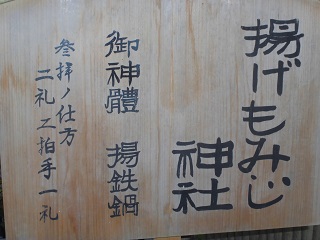 揚げもみじ
神社
御神體 揚鉄鍋
参拝ノ仕方
二礼二拍手一礼